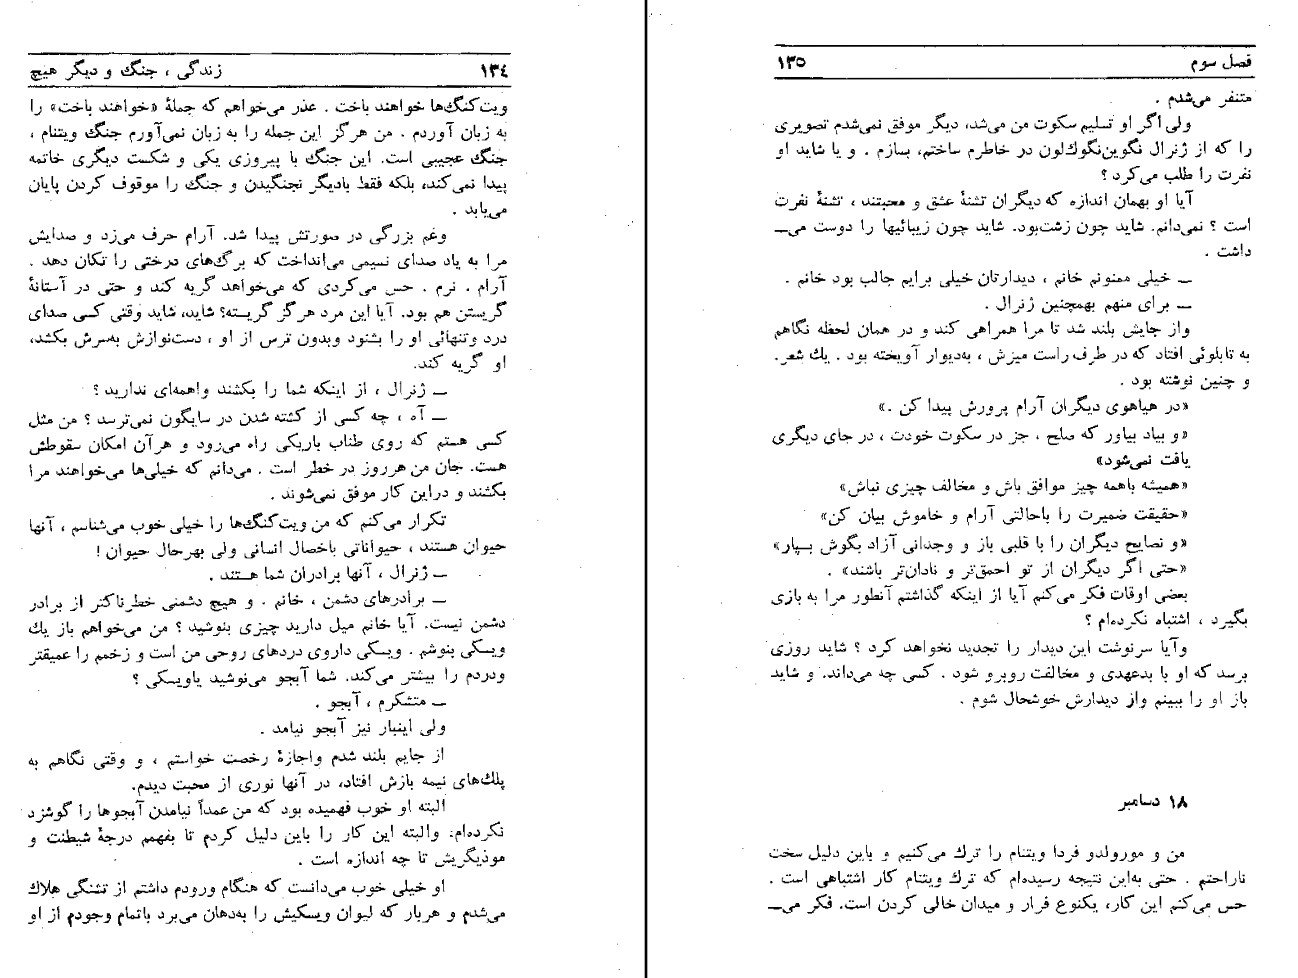 ۱۳٤ زندگی ، جنگ و دیگر هیچ
ویت‌کنگ‌ها خواهند باخت . عذر می‌خواهم که جملهٔ «خواهند باخت» را
به زبان آوردم . من هرگز این جمله را به زبان نمی‌آورم جنگ ویتنام ،
جنگ عجیبی است. این جنگ با پیروزی یکی و شکست دیگری خاتمه
پیدا نمی‌کند، بلکه فقط بادیگر نجنگیدن و جنگ را موقوف کردن پایان
می‌یابد .
وغم بزرگی در صورتش پیدا شد. آرام حرف می‌زد و صدایش
مرا به یاد صدای نسیمی می‌انداخت که برگ‌های درختی را تکان دهد .
آرام . نرم . حس می‌کردی که می‌خواهد گریه کند و حتی در آستانهٔ
گریستن هم بود. آیا این مرد هرگز گریسته؟ شاید، شاید وقتی کسی صدای
درد وتنهائی او را بشنود وبدون ترس از او ، دست‌نوازش به‌سرش بکشد،
او گریه کند.
ــ ژنرال ، از اینکه شما را بکشند واهمه‌ای ندارید ؟
ــ آه ، چه کسی از کشته شدن در سایگون نمی‌ترسد ؟ من مثل
کسی هستم که روی طناب باریکی راه می‌رود و هرآن امکان سقوطش
هست. جان من هرروز در خطر است . می‌دانم که خیلی‌ها می‌خواهند مرا
بکشند و دراین کار موفق نمی‌شوند .
تکرار می‌کنم که من ویت‌کنگ‌ها را خیلی خوب می‌شناسم ، آنها
حیوان هستند ، حیواناتی باخصال انسانی ولی بهرحال حیوان !
ــ ژنرال ، آنها برادران شما هستند .
ــ برادرهای دشمن ، خانم . و هیچ دشمنی خطرناکتر از برادر
دشمن نیست. آیا خانم میل دارید چیزی بنوشید ؟ من می‌خواهم باز یك
ویسکی بنوشم . ویسکی داروی دردهای روحی من است و زخمم را عمیقتر
ودردم را بیشتر می‌کند. شما آبجو می‌نوشید یاویسکی ؟
ــ متشکرم ، آبجو .
ولی اینبار نیز آبجو نیامد .
از جایم بلند شدم واجازهٔ رخصت خواستم ، و وقتی نگاهم به
پلك‌های نیمه بازش افتاد، در آنها نوری از محبت دیدم.
البته او خوب فهمیده بود که من عمداً نیامدن آبجوها را گوشزد
نکرده‌ام. والبته این کار را باین دلیل کردم تا بفهمم درجهٔ شیطنت و
موذیگریش تا چه اندازه است .
او خیلی خوب می‌دانست که هنگام ورودم داشتم از تشنگی هلاك
می‌شدم و هربار که لیوان ویسکیش را به‌دهان می‌برد باتمام وجودم از او
فصل سوم ۱۳٥
متنفر می‌شدم .
ولی اگر او تسلیم سکوت من می‌شد، دیگر موفق نمی‌شدم تصویری
را که از ژنرال نگوین‌نگوك‌لون در خاطرم ساختم، بسازم . و یا شاید او
نفرت را طلب می‌کرد ؟
آیا او بهمان اندازه که دیگران تشنهٔ عشق و محبتند ، تشنهٔ نفرت
است ؟ نمی‌دانم. شاید چون زشت‌بود. شاید چون زیبائیها را دوست می‌ــ
داشت .
ــ خیلی ممنونم خانم ، دیدارتان خیلی برایم جالب بود خانم .
ــ برای منهم بهمچنین ژنرال .
واز جایش بلند شد تا مرا همراهی کند و در همان لحظه نگاهم
به تابلوئی افتاد که در طرف راست میزش ، به‌دیوار آویخته بود . یك شعر.
و چنین نوشته بود .
«در هیاهوی دیگران آرام پرورش پیدا کن .»
«و بیاد بیاور که صلح ، جز در سکوت خودت ، در جای دیگری
یافت نمی‌شود»
«همیشه باهمه چیز موافق باش و مخالف چیزی نباش»
«حقیقت ضمیرت را باحالتی آرام و خاموش بیان کن»
«و نصایح دیگران را با قلبی باز و وجدانی آزاد بگوش بسپار»
«حتی اگر دیگران از تو احمق‌تر و نادان‌تر باشند» .
بعضی اوقات فکر می‌کنم آیا از اینکه گذاشتم آنطور مرا به بازی
بگیرد ، اشتباه نکرده‌ام ؟
وآیا سرنوشت این دیدار را تجدید نخواهد کرد ؟ شاید روزی
برسد که او با بدعهدی و مخالفت روبرو شود . کسی چه می‌داند. و شاید
باز او را ببینم واز دیدارش خوشحال شوم .
۱۸ دسامبر
من و مورولدو فردا ویتنام را ترك می‌کنیم و باین دلیل سخت
ناراحتم . حتی به‌این نتیجه رسیده‌ام که ترك ویتنام کار اشتباهی است .
حس می‌کنم این کار، یکنوع فرار و میدان خالی کردن است. فکر می‌ــ